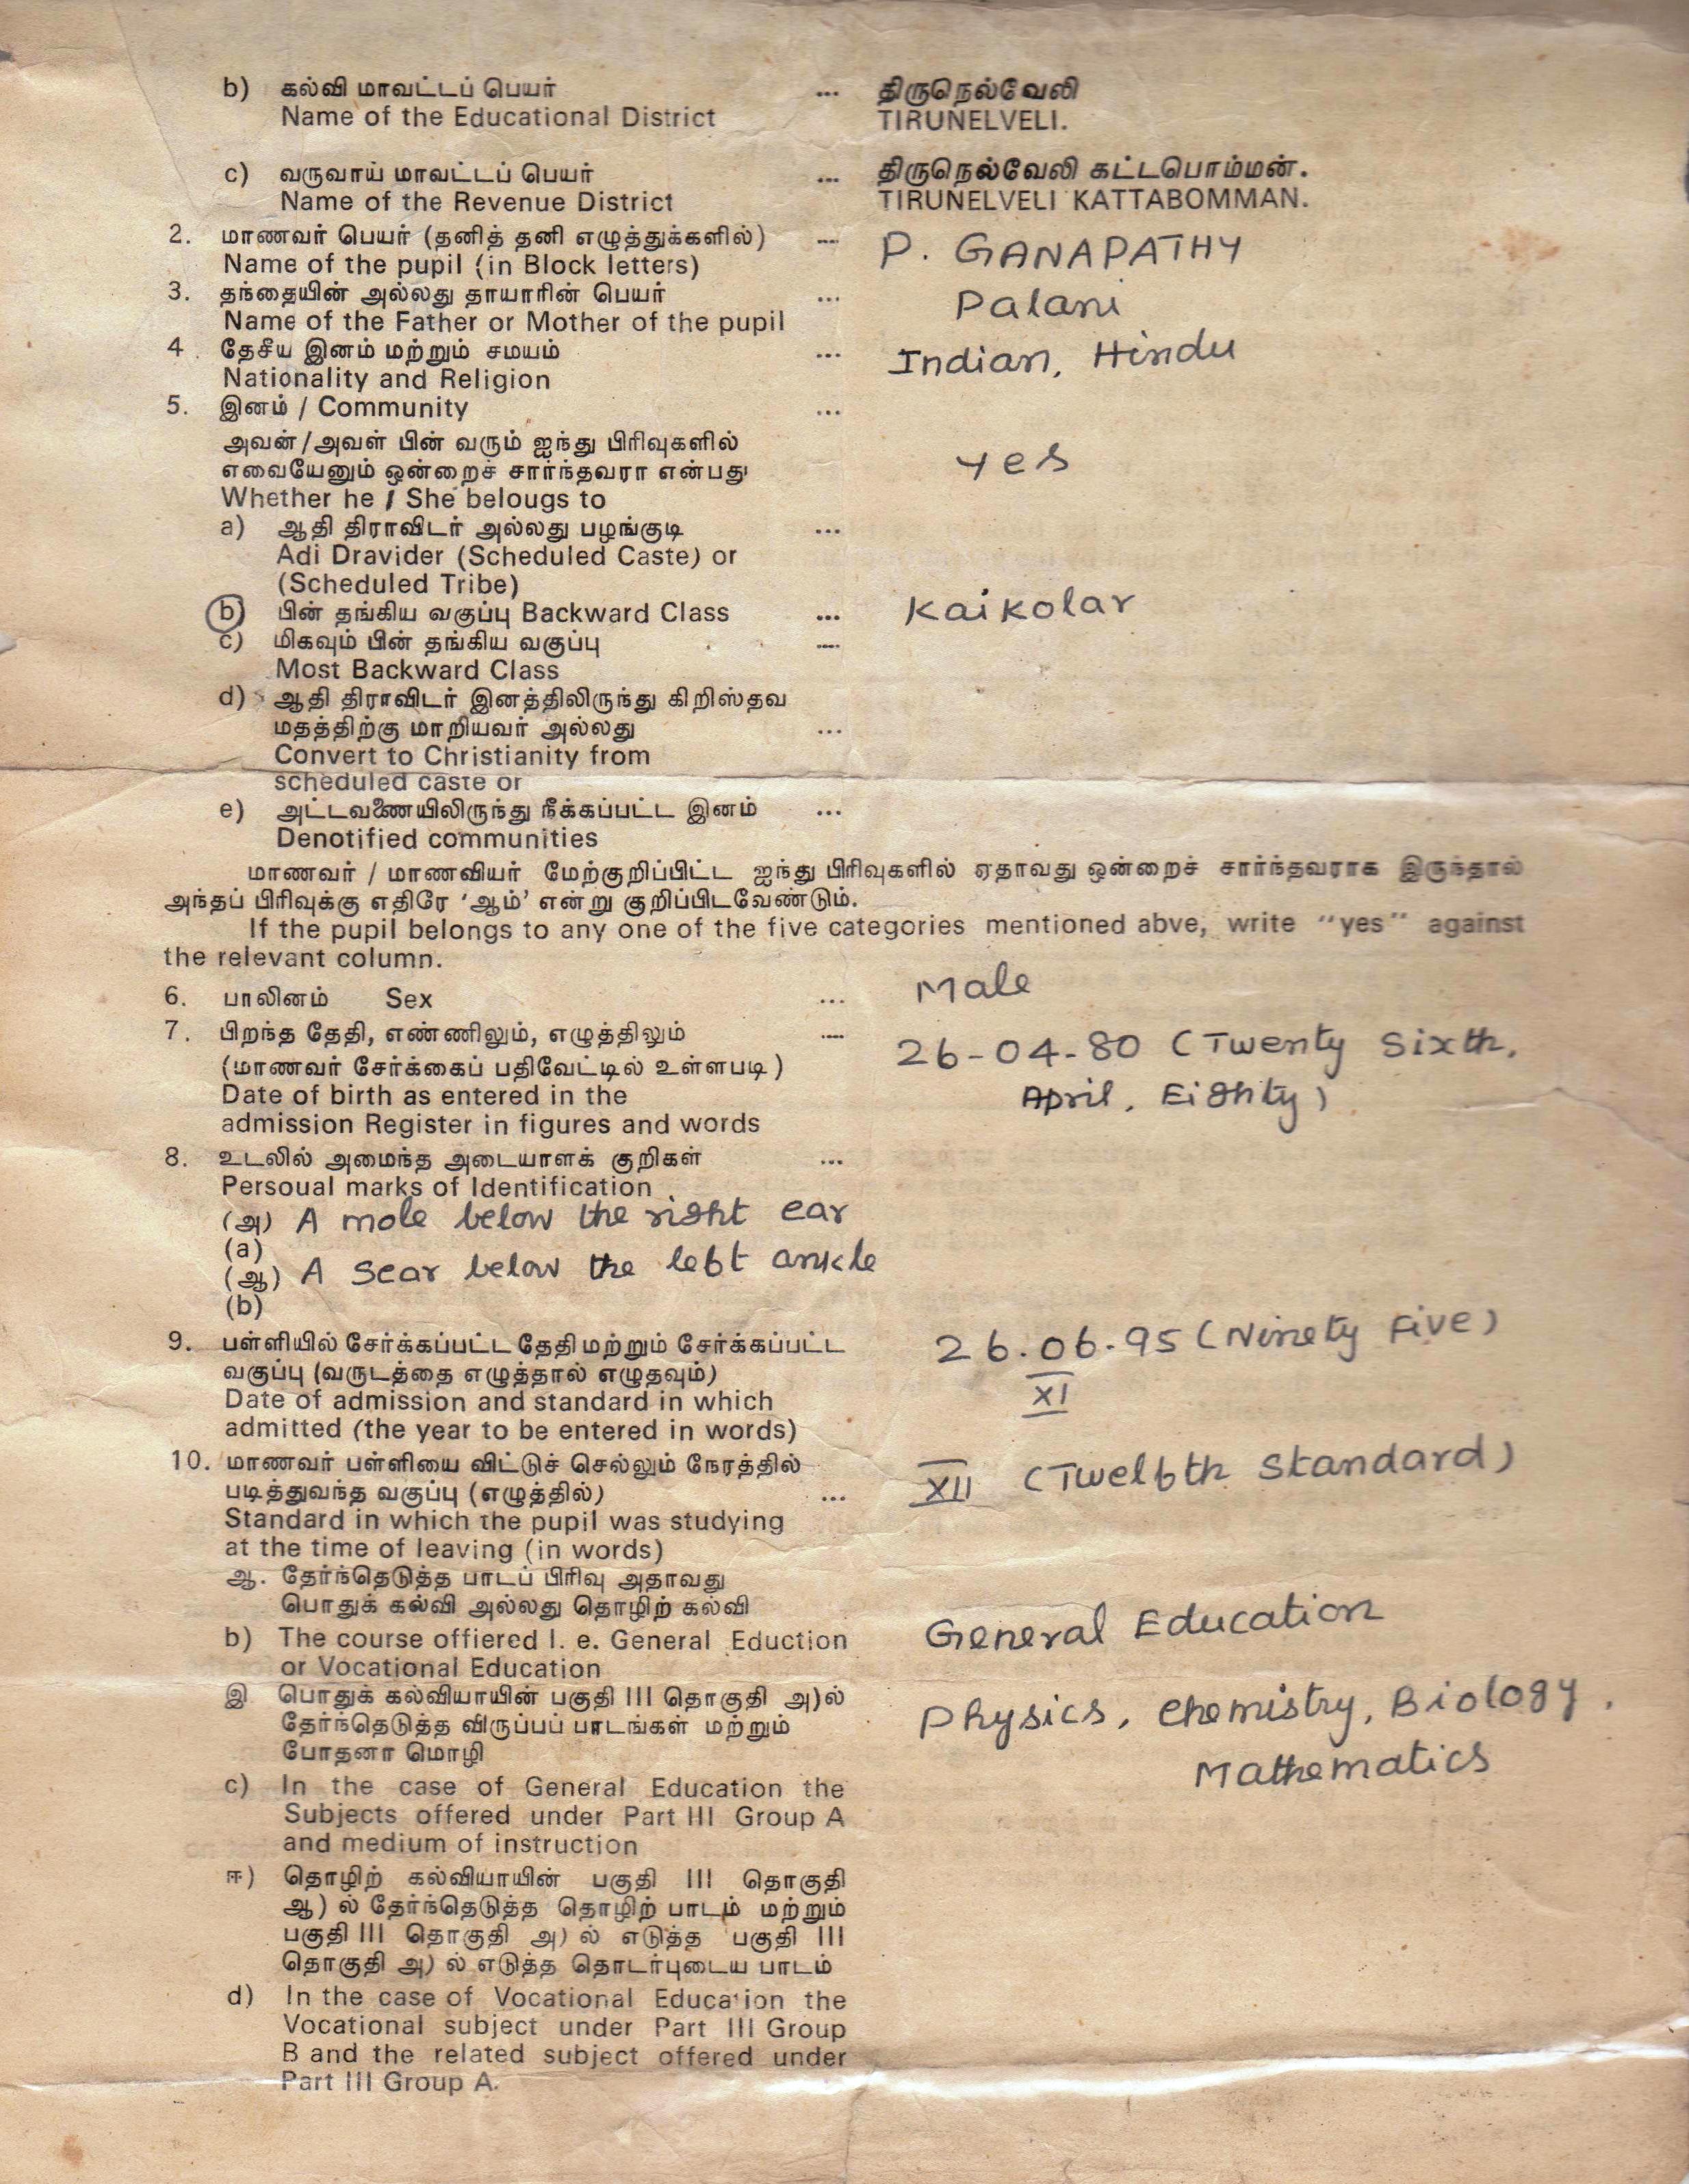 b) கல்வி மாவட்டப் பெயர் ... திருநெல்வேலி
Name of the Educational District TIRUNELVELI.
c) வருவாய் மாவட்டப் பெயர் ... திருநெல்வேலி கட்டபொம்மன்.
Name of the Revenue District TIRUNELVELI KATTABOMMAN.
2. மாணவர் பெயர் (தனித் தனி எழுத்துக்களில்) ... P. GANAPATHY
Name of the pupil (in Block letters)
3. தந்தையின் அல்லது தாயாரின் பெயர் ... Palani
Name of the Father or Mother of the pupil
4. தேசீய இனம் மற்றும் சமயம் ... Indian, Hindu
Nationality and Religion
5. இனம் / Community ...
அவன்/அவள் பின் வரும் ஐந்து பிரிவுகளில்
எவையேனும் ஒன்றைச் சார்ந்தவரா என்பது yes
Whether he / She belougs to
a) ஆதி திராவிடர் அல்லது பழங்குடி ...
Adi Dravider (Scheduled Caste) or
(Scheduled Tribe)
b) பின் தங்கிய வகுப்பு Backward Class ... Kaikolar
c) மிகவும் பின் தங்கிய வகுப்பு ....
Most Backward Class
d) ஆதி திராவிடர் இனத்திலிருந்து கிறிஸ்தவ
மதத்திற்கு மாறியவர் அல்லது ...
Convert to Christianity from
scheduled caste or
e) அட்டவணையிலிருந்து நீக்கப்பட்ட இனம் ...
Denotified communities
மாணவர் / மாணவியர் மேற்குறிப்பிட்ட ஐந்து பிரிவுகளில் ஏதாவது ஒன்றைச் சார்ந்தவராக இருந்தால்
அந்தப் பிரிவுக்கு எதிரே ‘ஆம்’ என்று குறிப்பிடவேண்டும்.
If the pupil belongs to any one of the five categories mentioned abve, write “yes” against
the relevant column.
6. பாலினம் Sex ... Male
7. பிறந்த தேதி, எண்ணிலும், எழுத்திலும் .... 26-04-80 (Twenty Sixth,
(மாணவர் சேர்க்கைப் பதிவேட்டில் உள்ளபடி) April, Eighty)
Date of birth as entered in the
admission Register in figures and words
8. உடலில் அமைந்த அடையாளக் குறிகள் ...
Persoual marks of Identification
(அ) A mole below the right ear
(a)
(ஆ) A Scar below the left ankle
(b)
9. பள்ளியில் சேர்க்கப்பட்ட தேதி மற்றும் சேர்க்கப்பட்ட 26.06.95 (Ninety Five)
வகுப்பு (வருடத்தை எழுத்தால் எழுதவும்) XI
Date of admission and standard in which
admitted (the year to be entered in words)
10. மாணவர் பள்ளியை விட்டுச் செல்லும் நேரத்தில் XII (Twelfth Standard)
படித்துவந்த வகுப்பு (எழுத்தில்) ...
Standard in which the pupil was studying
at the time of leaving (in words)
ஆ. தேர்ந்தெடுத்த பாடப் பிரிவு அதாவது
பொதுக் கல்வி அல்லது தொழிற் கல்வி General Education
b) The course offiered I. e. General Eduction
or Vocational Education
இ பொதுக் கல்வியாயின் பகுதி III தொகுதி அ)ல் Physics, Chemistry, Biology,
தேர்ந்தெடுத்த விருப்பப் பாடங்கள் மற்றும்
போதனா மொழி Mathematics
c) In the case of General Education the
Subjects offered under Part III Group A
and medium of instruction
ஈ) தொழிற் கல்வியாயின் பகுதி III தொகுதி
ஆ) ல் தேர்ந்தெடுத்த தொழிற் பாடம் மற்றும்
பகுதி III தொகுதி அ) ல் எடுத்த பகுதி III
தொகுதி அ) ல் எடுத்த தொடர்புடைய பாடம்
d) In the case of Vocational Education the
Vocational subject under Part III Group
B and the related subject offered under
Part III Group A.